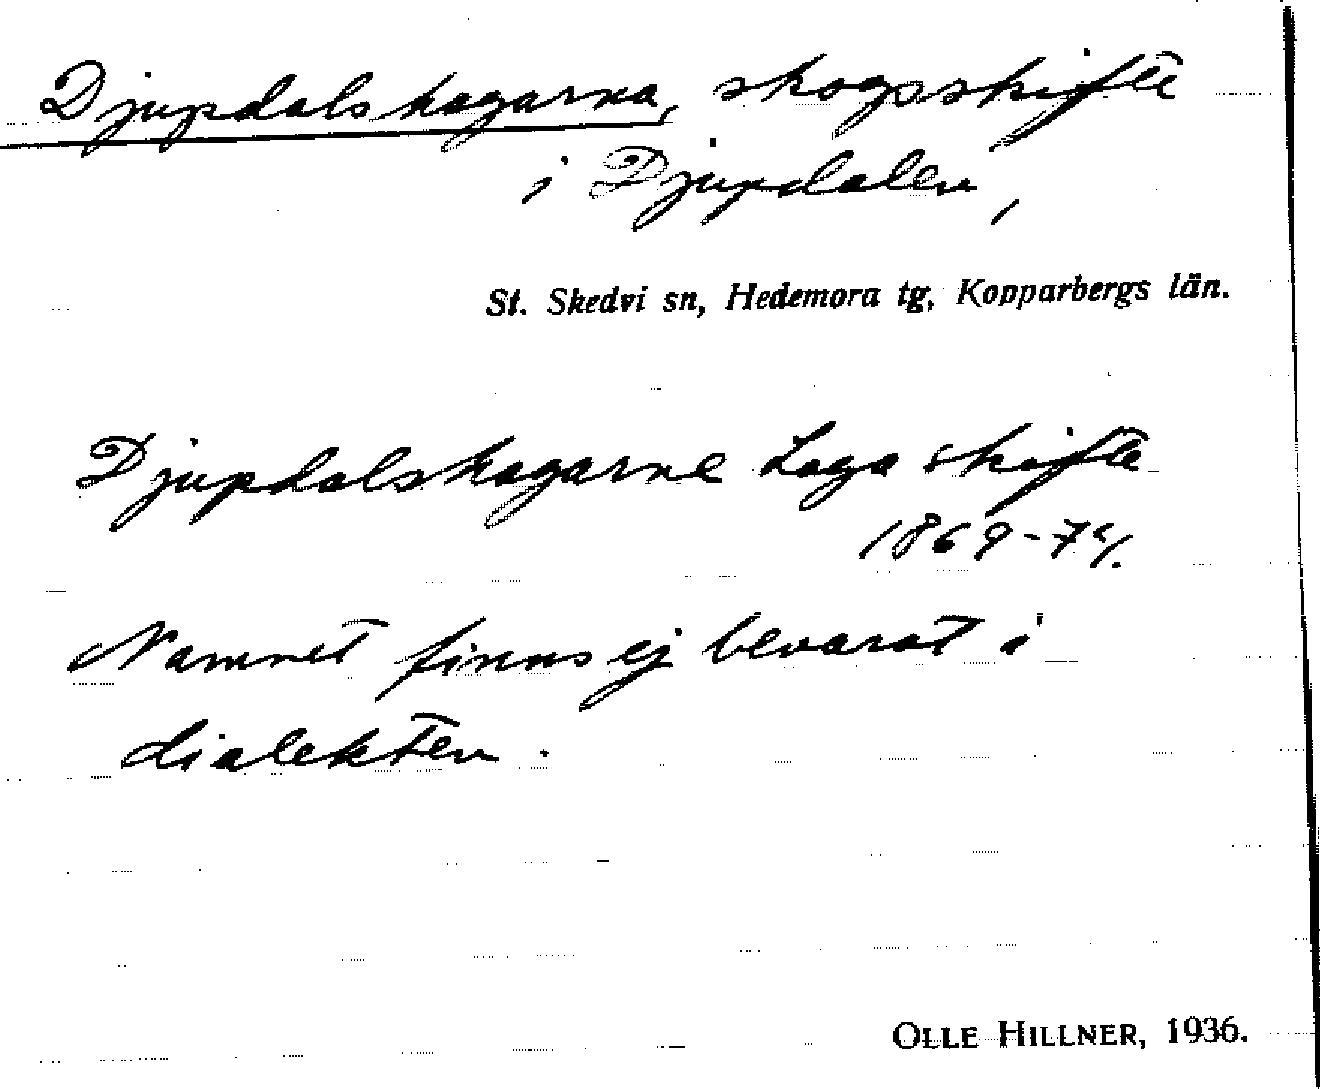 Djupdalshagarna, skogsskifte
i Djupdalen,
St. Skedvi sn, Hedemora tg, Kopparbergs län.
Djupdalshagarne Laga skifte
1869-74.
Namnet finns ej bevarat i
dialekten.
OLLE HILLNER, 1936.